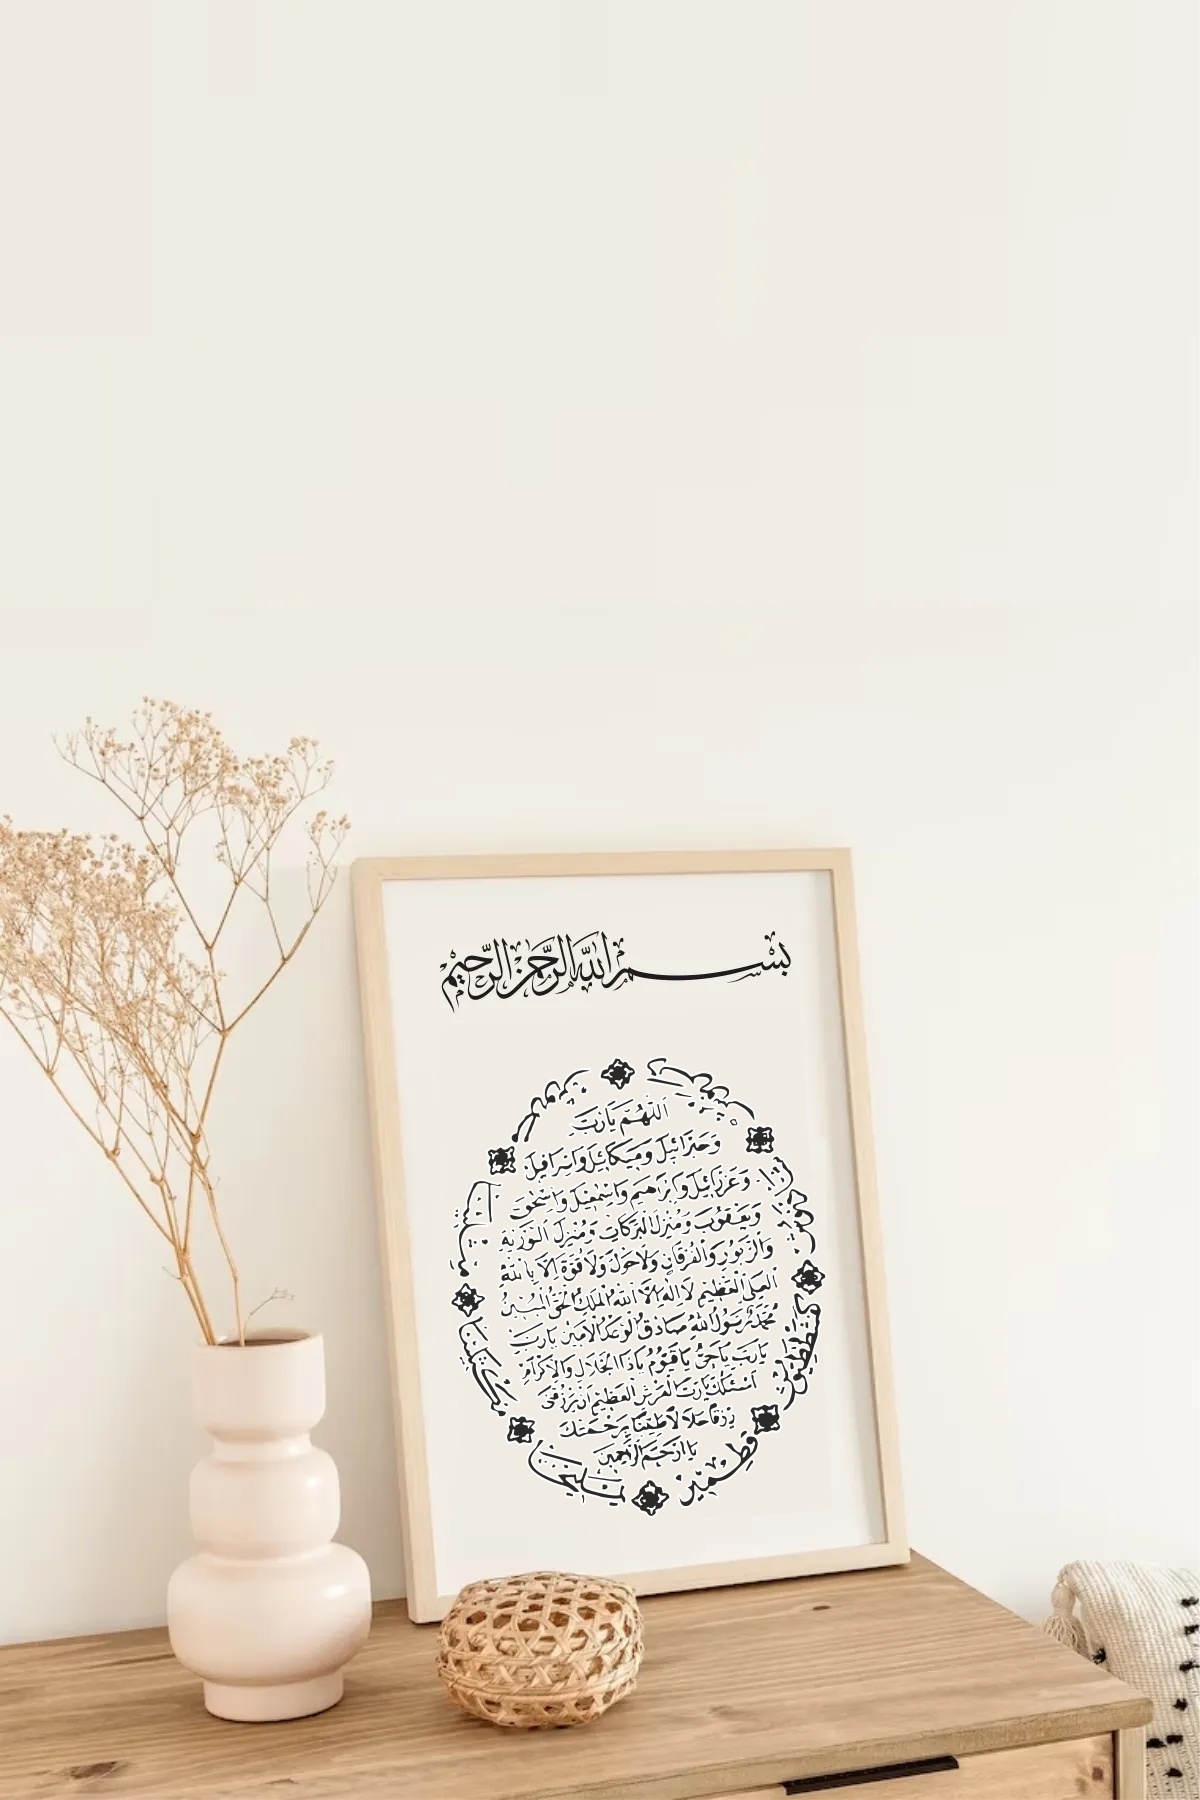 بسم الله الرحمن الرحيم
اَللّٰهُمَّ يَارَبَّ
وَجَبْرَائِيلَ وَمِيكَائِيلَ وَاِسْرَافِيلَ
وَعَزْرَائِيلَ وَاِبْرَاهِيمَ وَاِسْمٰعِيلَ وَاِسْحٰقَ
وَيَعْقُوبَ وَمُنْزِلَ الْبَرَكَاتِ وَمُنْزِلَ التَّوْرٰيةِ
وَالزَّبُورِ وَالْفُرْقَانِ وَلَاحَوْلَ وَلَا قُوَّةَ اِلَّا بِاللّٰهِ
الْعَلِىِّ الْعَظِيمِ لَا اِلٰهَ اِلَّا اللّٰهُ الْمَلِكُ الْحَقُّ الْمُبِينُ
مُحَمَّدٌ رَسُولُ اللّٰهِ صَادِقُ الْوَعْدِ الْاَمِينُ يَارَبِّ
يَارَبِّ يَاحَىُّ يَاقَيُّومُ يَاذَا الْجَلَالِ وَالْاِكْرَامِ
اَسْئَلُكَ يَارَبَّ الْعَرْشِ الْعَظِيمِ اَنْ يَرْزُقَنِى
رِزْقًا حَلَالًا طَيِّبًا بِرَحْمَتِكَ
يَا اَرْحَمَ الرَّاحِمِينَ
كفشططيوش
قطمير
يمليخا
مكثلينا